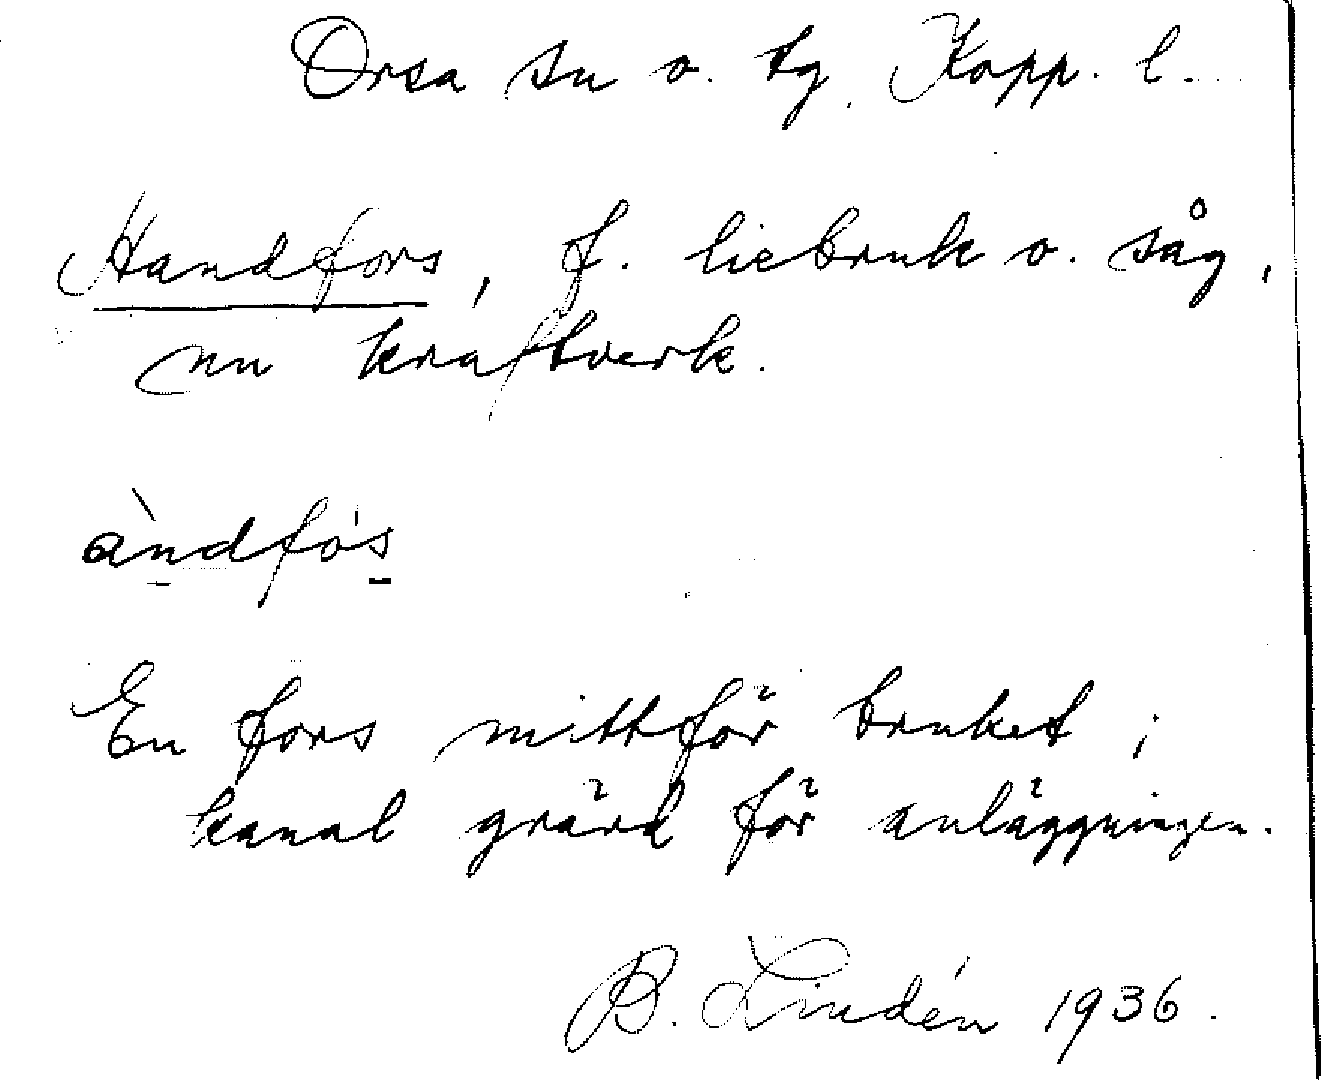 Orsa sn o. tg. Kopp. l.
Handfors, f. liebruk o. såg,
nu kraftverk.
àndfós
En fors mittför bruket;
kanal grävd för anläggningen.
B. Lindén 1936.